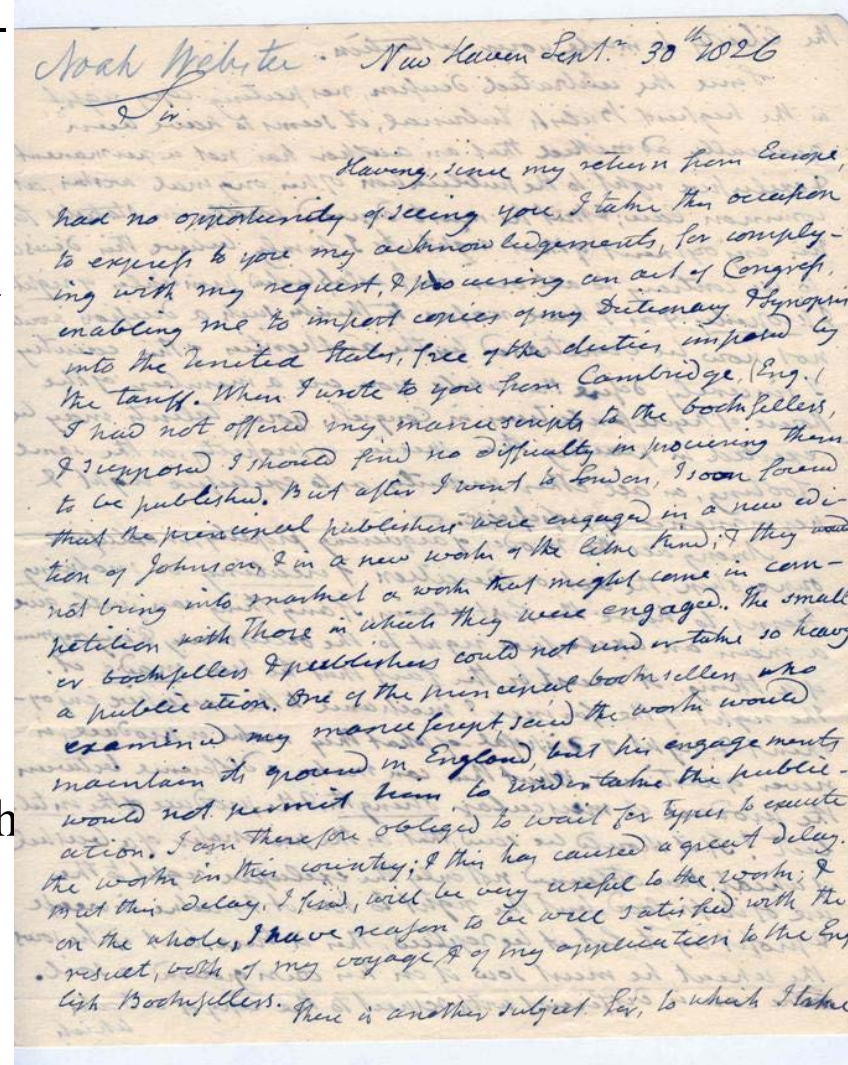 Noah Webster New Haven Sept.r 30th 1826
Sir
Having, since my return from Europe,
had no opportunity of seeing you I take this occasion
to express to you my acknowledgements, for comply-
ing with my request, & procuring an act of Congress,
enabling me to import copies of my Dictionary & Synopsis
into the United States, free of the duties imposed by
the tariff. When I wrote to you from Cambridge, (Eng.)
I had not offered my manuscripts to the booksellers,
& I supposed I should find no difficulty in procuring them
to be published. But after I went to London, I soon found
that the principal publishers were engaged in a new edi-
tion of Johnson, & in a new work of the like kind; & they would
not bring into market a work that might come in com-
petition with those in which they were engaged. The small
er booksellers & publishers could not undertake so heavy
a publication. One of the principal booksellers who
examined my manuscript, said the work would
maintain its ground in England, but his engagements
would not permit him to undertake the public-
ation. I am therefore obliged to wait for types to execute
the work in this country; & this has caused a great delay.
But this delay, I find, will be very useful to the work; &
on the whole, I have reason to be well satisfied with the
result, both of my voyage & of my application to the Eng
lish Booksellers.
There is another subject, Sir, to which I take
h